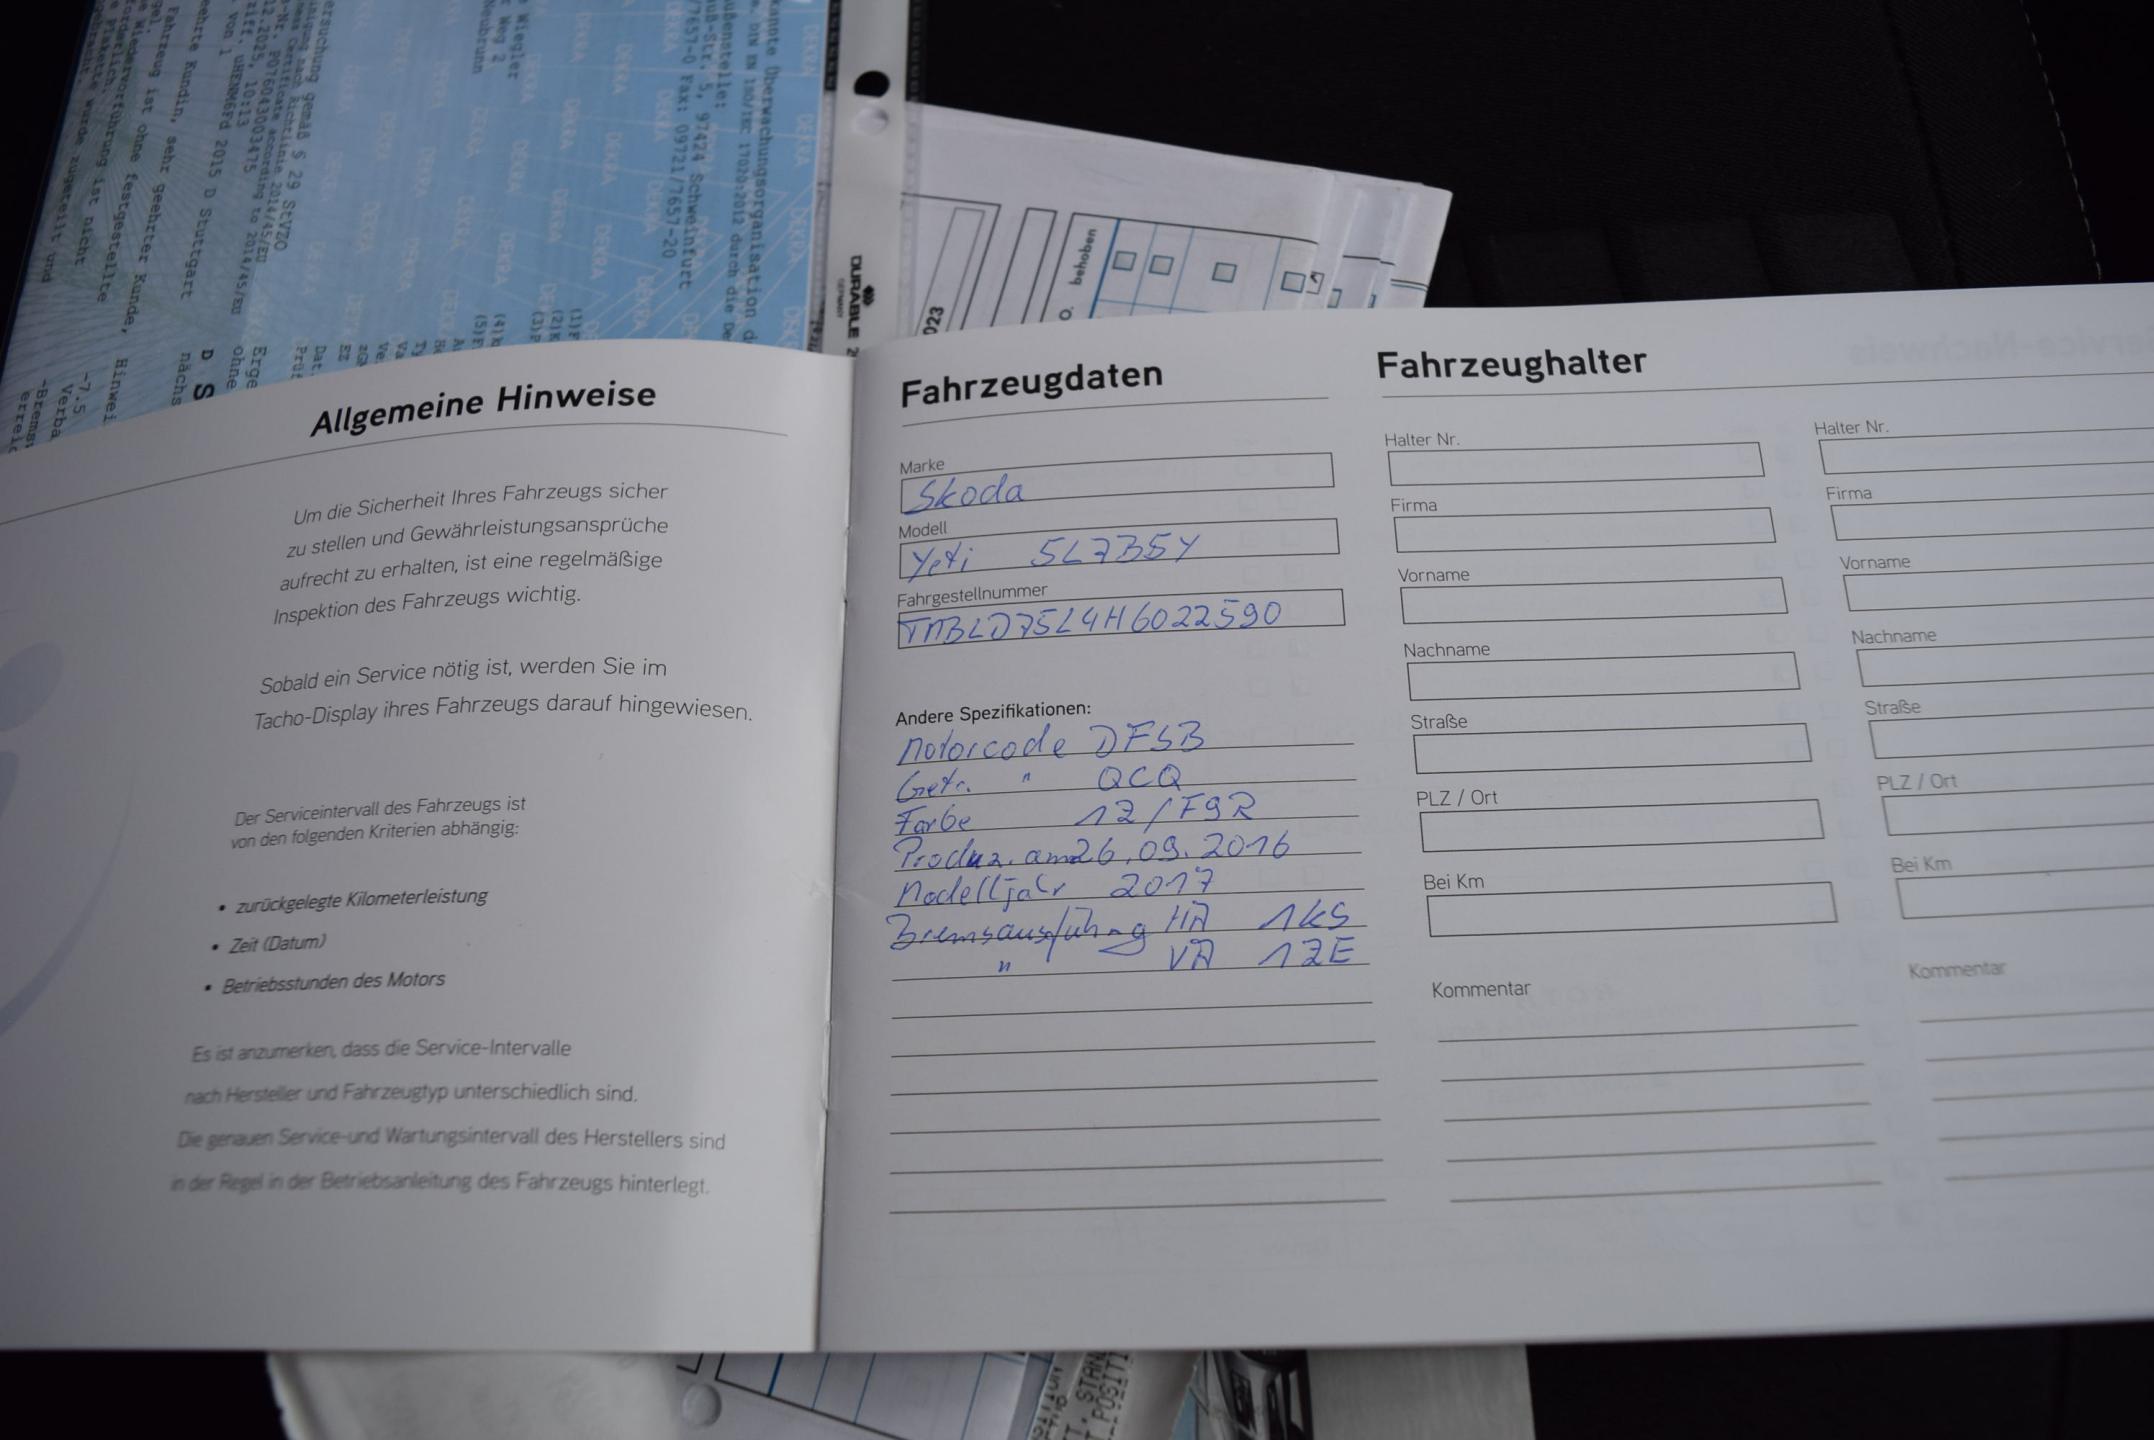 Allgemeine Hinweise
Um die Sicherheit Ihres Fahrzeugs sicher
zu stellen und Gewährleistungsansprüche
aufrecht zu erhalten, ist eine regelmäßige
Inspektion des Fahrzeugs wichtig.
Sobald ein Service nötig ist, werden Sie im
Tacho-Display ihres Fahrzeugs darauf hingewiesen.
Der Serviceintervall des Fahrzeugs ist
von den folgenden Kriterien abhängig:
• zurückgelegte Kilometerleistung
• Zeit (Datum)
• Betriebsstunden des Motors
Es ist anzumerken, dass die Service-Intervalle
nach Hersteller und Fahrzeugtyp unterschiedlich sind.
Die genauen Service-und Wartungsintervall des Herstellers sind
in der Regel in der Betriebsanleitung des Fahrzeugs hinterlegt.
Fahrzeugdaten
Marke
Skoda
Modell
Yeti 5L7B5Y
Fahrgestellnummer
TMBLD75L4H6022590
Andere Spezifikationen:
Motorcode DFSB
Getr. " QCQ
Farbe 1Z/F9R
Produz. am 26.09.2016
Modelljahr 2017
Bremsausführung HA 1KS
" VA 1ZE
Fahrzeughalter
Halter Nr.
Firma
Vorname
Nachname
Straße
PLZ / Ort
Bei Km
Kommentar
Halter Nr.
Firma
Vorname
Nachname
Straße
PLZ / Ort
Bei Km
Kommentar
DURABLE
GERMANY
behoben
023
DEKRA
97424 Schweinfurt
/7657-0 Fax: 09721/7657-20
Wiegler
Weg 2
12.2025, 10:13
2015 D Stuttgart